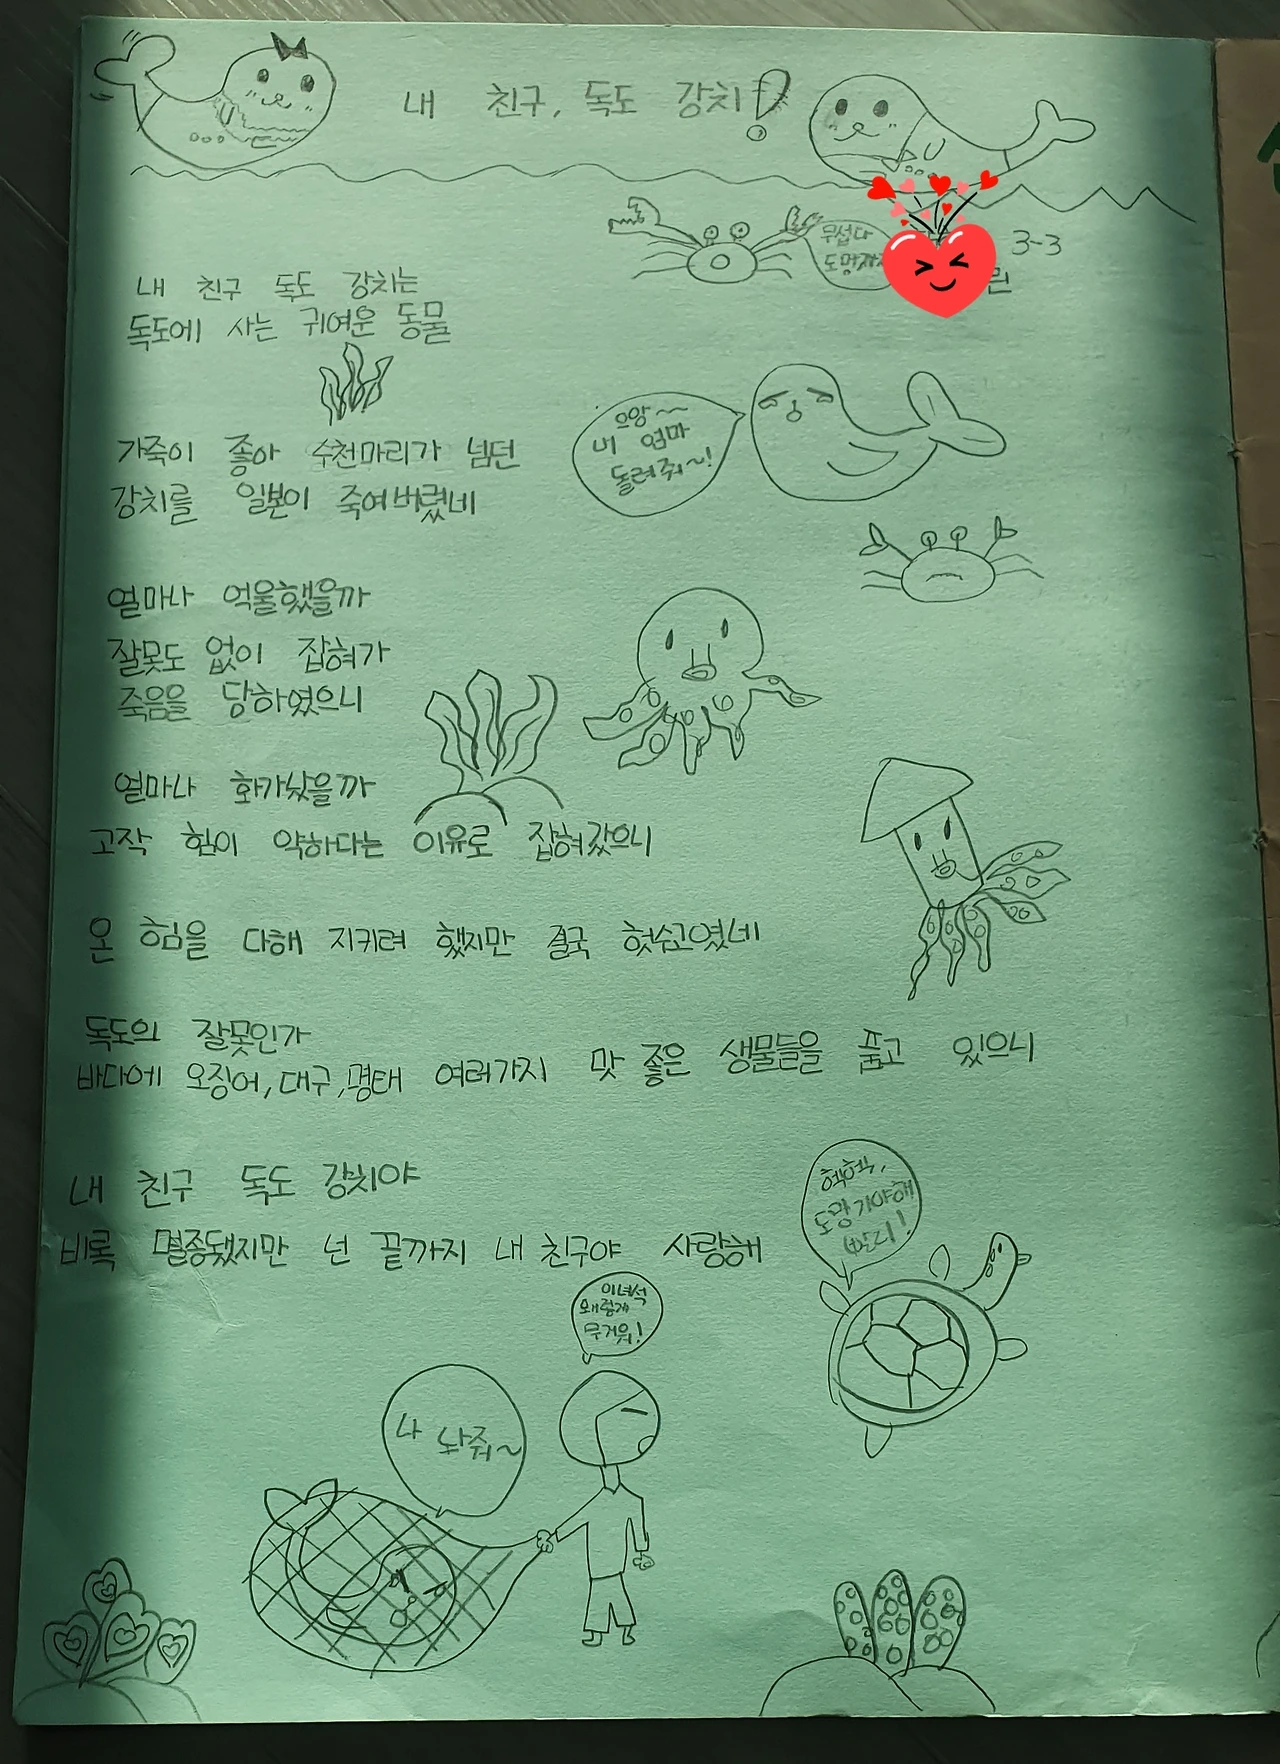 내 친구, 독도 강치!
무섭다
도망가자
3-3
린
내 친구 독도 강치는
독도에 사는 귀여운 동물
가죽이 좋아 수천마리가 넘던
강치를 일본이 죽여버렸네
으앙~~
내 엄마
돌려줘~!
얼마나 억울했을까
잘못도 없이 잡혀가
죽음을 당하였으니
얼마나 화가났을까
고작 힘이 약하다는 이유로 잡혀갔으니
온 힘을 다해 지키려 했지만 결국 헛수고였네
독도의 잘못인가
바다에 오징어, 대구, 명태 여러가지 맛 좋은 생물들을 품고 있으니
내 친구 독도 강치야
비록 멸종됐지만 넌 끝까지 내 친구야 사랑해
헉헉,
도망가야해
빨리!
이녀석
왜렇게
무거워!
나 놔줘~